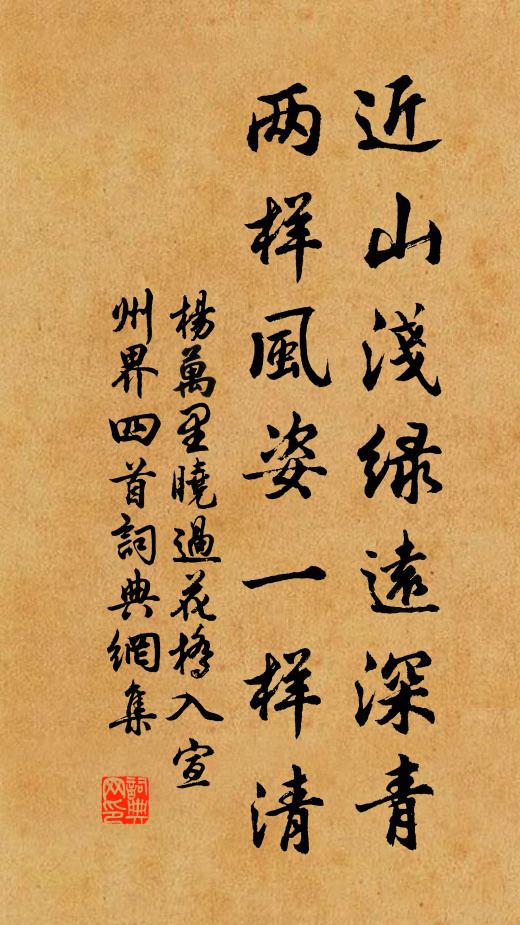 近山淺緑遠深青
两样風姿一样清
楊萬里曉過花橋入宣
州界四首詞典網集
詞典
网印